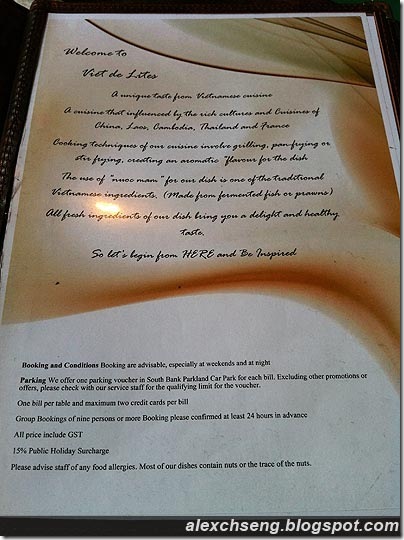 Welcome to
Viet de Lites
A unique taste from Vietnamese cuisine
A cuisine that influenced by the rich cultures and Cuisines of
China, Laos, Cambodia, Thailand and France
Cooking techniques of our cuisine involve grilling, pan-frying or
stir frying, creating an aromatic "flavour for the dish
The use of "nuoc mam" for our dish is one of the traditional
Vietnamese ingredients. (Made from fermented fish or prawns)
All fresh ingredients of our dish bring you a delight and healthy
taste.
So let's begin from HERE and Be Inspired
Booking and Conditions Booking are advisable, especially at weekends and at night
Parking We offer one parking voucher in South Bank Parkland Car Park for each bill. Excluding other promotions or
offers, please check with our service staff for the qualifying limit for the voucher.
One bill per table and maximum two credit cards per bill
Group Bookings of nine persons or more Booking please confirmed at least 24 hours in advance
All price include GST
15% Public Holiday Surcharge
Please advise staff of any food allergies. Most of our dishes contain nuts or the trace of the nuts.
alexchseng.blogspot.com